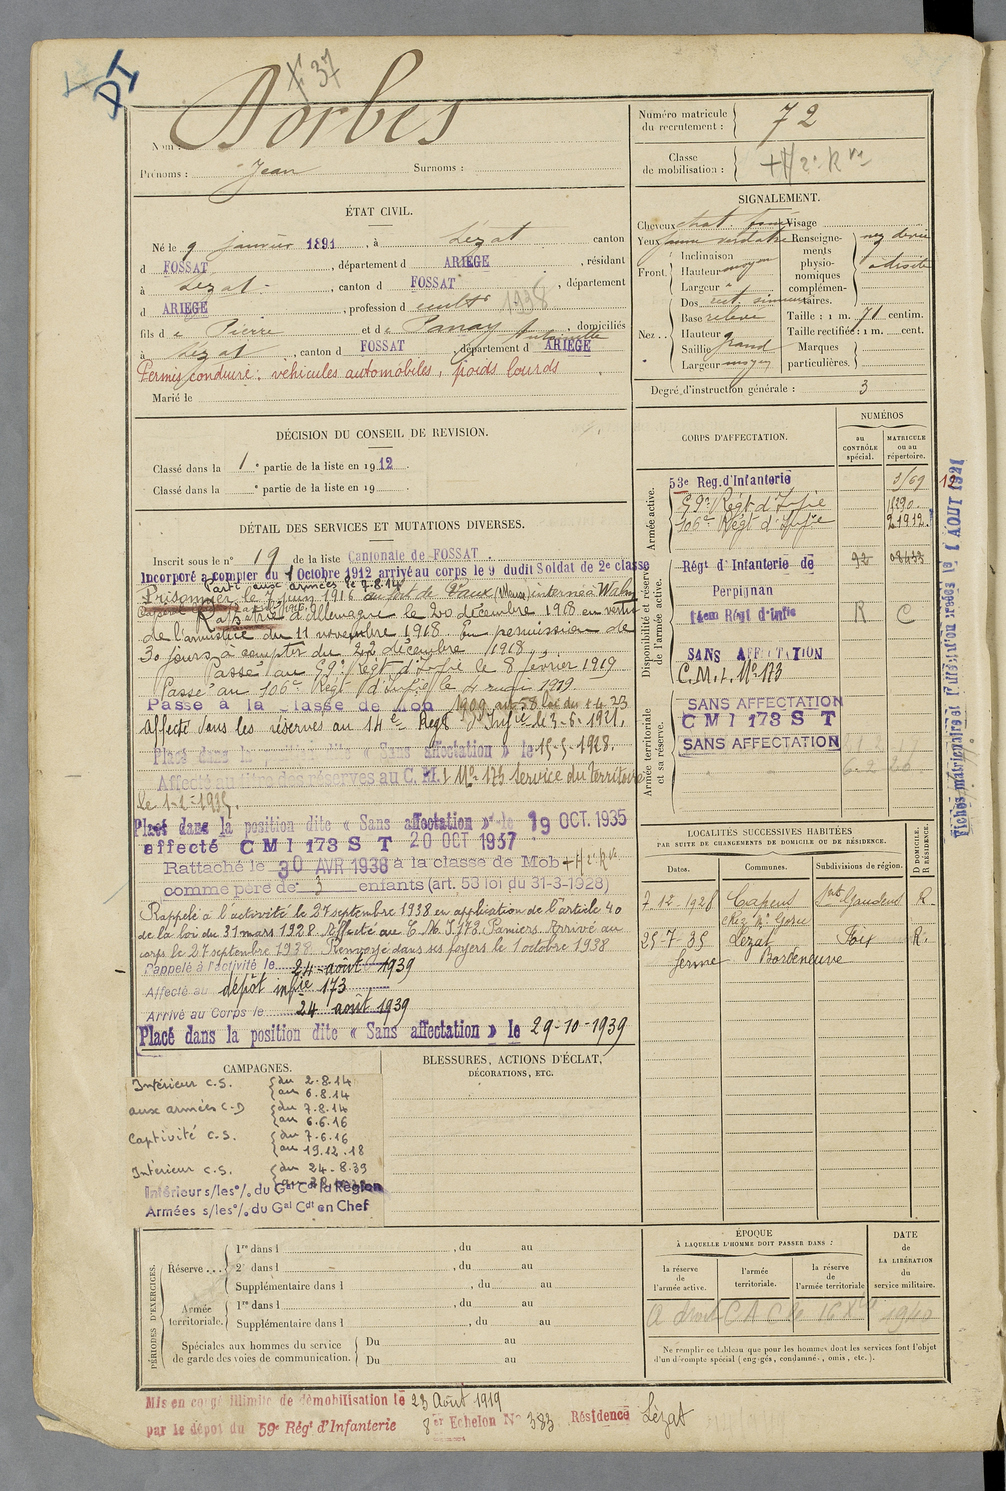 X 37
DI
Nom : Dorbes
Prénoms : Jean Surnoms :
Numéro matricule du recrutement : 72
Classe de mobilisation :
ÉTAT CIVIL.
Né le 9 janvier 1891, à Lézat canton
d FOSSAT, département d ARIEGE, résidant
à Lézat, canton d FOSSAT, département
d ARIEGE, profession d cultr 1938
fils d e Pierre et d e Panay Antoinette, domiciliés
à Lézat, canton d FOSSAT, département d ARIEGE
Permis conduire : véhicules automobiles, poids lourds
Marié le
SIGNALEMENT.
Cheveux chat. foncé Visage
Yeux jaune verdatre
Front. Inclinaison
Hauteur moyen
Largeur "
Nez.. Dos rect. sinueux
Base relevé
Hauteur grand
Saillie
Largeur moyen
Renseignements physionomiques complémentaires. nez dévié à droite
Taille : 1 m. 71 centim.
Taille rectifiée : 1 m. cent.
Marques particulières.
Degré d'instruction générale : 3
DÉCISION DU CONSEIL DE REVISION.
Classé dans la 1e partie de la liste en 1912.
Classé dans la e partie de la liste en 19
DÉTAIL DES SERVICES ET MUTATIONS DIVERSES.
Inscrit sous le n° 19 de la liste Cantonale de FOSSAT.
Incorporé à compter du 1 Octobre 1912 arrivé au corps le 9 dudit Soldat de 2e classe
Parti aux armées le 7.8.14
Prisonnier le 7 juin 1916 au fort de Vaux (Meuse) interné à Wahn
Rapatrié d'Allemagne le 20 décembre 1918 en vertu
de l'armistice du 11 novembre 1918. En permission de
30 jours à compter du 22 décembre 1918.
Passé au 59e Régt d'Infie le 8 février 1919
Passé au 106e Régt d'Infie le 4 mai 1919
Passé à la Classe de Mob 1909 art 58 loi du 1.4.23
Affecté dans les réserves au 14e Régt d'Infie le 3-6-1921.
Placé dans la position dite « Sans affectation » le 15-5-1928.
Affecté au titre des réserves au C.M.I No 173 Service du Territoire
Placé dans la position dite « Sans affectation » le 19 OCT. 1935
affecté CMI 173 S T 20 OCT 1937
Rattaché le 30 AVR 1938 à la classe de Mob
comme père de 3 enfants (art. 58 loi du 31-3-1928)
Rappelé à l'activité le 27 septembre 1938 en application de l'article 40
de la loi du 31 mars 1928. Affecté au C.M.I. 173 Pamiers. Arrivé au
corps le 27 septembre 1938. Renvoyé dans ses foyers le 1 octobre 1938
Rappelé à l'activité le 24 août 1939
Affecté au dépôt infie 173
Arrivé au Corps le 24 août 1939
Placé dans la position dite « Sans affectation » le 29-10-1939
CORPS D'AFFECTATION.
NUMÉROS
au CONTRÔLE spécial.
MATRICULE ou au répertoire.
Armée active.
53e Reg. d'Infanterie
59e Régt d'Infie
106e Régt d'Infie 21912
Disponibilité et réserve de l'armée active.
Régt d'Infanterie de
Perpignan
14em Régt d'Infie R C
SANS AFFECTATION
C.M.I. No 173
Armée territoriale et sa réserve.
SANS AFFECTATION
CMI 173 S T
SANS AFFECTATION
LOCALITÉS SUCCESSIVES HABITÉES
PAR SUITE DE CHANGEMENTS DE DOMICILE OU DE RÉSIDENCE.
Dates. Communes. Subdivisions de région. D DOMICILE. R RÉSIDENCE.
7-12-1928 Capens St Gaudens R.
25-7-35 Lézat Foix R.
ferme Bordeneuve
CAMPAGNES.
Intérieur C.S. du 2.8.14
au 6.8.14
aux armées C.D du 7.8.14
au 6.6.16
Captivité C.S. du 7-6-16
au 19.12.18
Intérieur C.S. du 24-8-39
Intérieur s/les% du Gal Cdt la Région
Armées s/les% du Gal Cdt en Chef
BLESSURES, ACTIONS D'ÉCLAT,
DÉCORATIONS, ETC.
PÉRIODES D'EXERCICES.
Réserve... 1re dans l , du au
2e dans l , du au
Supplémentaire dans l , du au
Armée territoriale. 1re dans l , du au
Supplémentaire dans l , du au
Spéciales aux hommes du service de garde des voies de communication. Du au
Du au
ÉPOQUE
À LAQUELLE L'HOMME DOIT PASSER DANS :
la réserve de l'armée active. l'armée territoriale. la réserve de l'armée territoriale
DATE de LA LIBÉRATION du service militaire.
1940
Ne remplir ce tableau que pour les hommes dont les services font l'objet
d'un décompte spécial (engagés, condamnés, omis, etc.).
Mis en congé illimité de démobilisation le 23 Août 1919
par le dépôt du 59e Régt d'Infanterie 8er Echelon No 383 Résidence Lézat